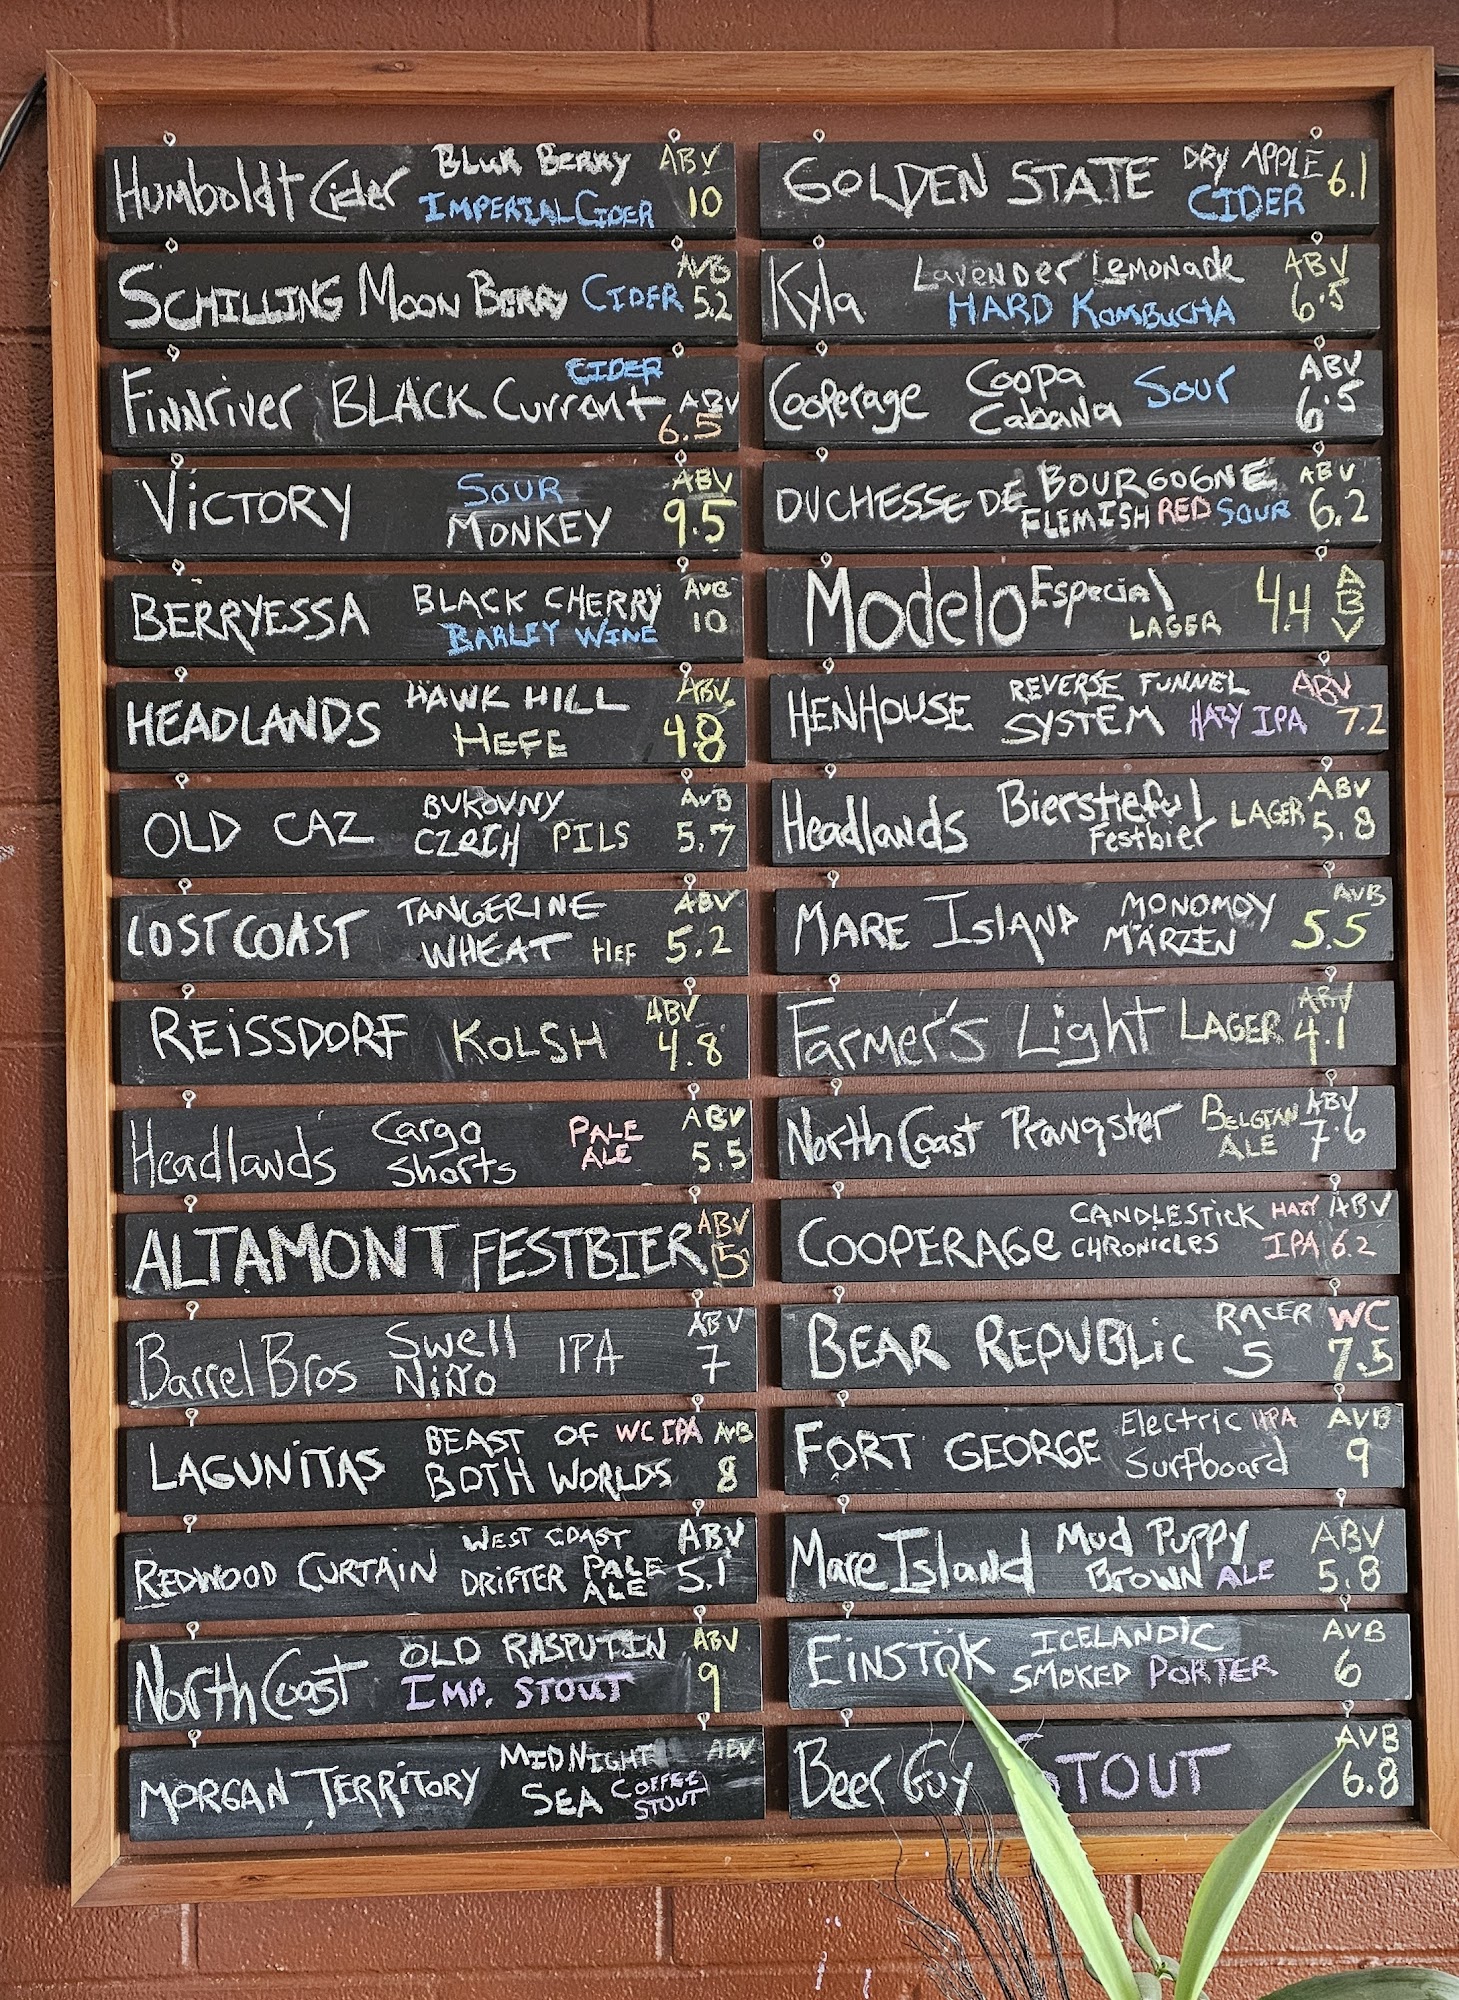 Humboldt Cider BLUR BERRY ABV
IMPERIAL CIDER 10
SCHILLING MOON BERRY CIDER AVB
5.2
CIDER
Finnriver BLACK Currant ABV
6.5
VICTORY SOUR ABV
MONKEY 9.5
BERRYESSA BLACK CHERRY AVB
BARLEY WINE 10
HEADLANDS HAWK HILL ABV
HEFE 4.8
OLD CAZ BUKOVNY AVB
CZECH PILS 5.7
LOST COAST TANGERINE ABV
WHEAT HEF 5.2
REISSDORF KOLSH ABV
4.8
Headlands Cargo PALE ABV
Shorts ALE 5.5
ALTAMONT FESTBIER ABV
5
Barrel Bros Swell IPA ABV
Niño 7
LAGUNITAS BEAST OF WC IPA AVB
BOTH WORLDS 8
REDWOOD CURTAIN WEST COAST ABV
DRIFTER PALE ALE 5.1
North Coast OLD RASPUTIN ABV
IMP. STOUT 9
MORGAN TERRITORY MIDNIGHT ABV
SEA COFFEE STOUT
GOLDEN STATE DRY APPLE 6.1
CIDER
Kyla Lavender Lemonade ABV
HARD KOMBUCHA 6.5
Cooperage Coopa Sour ABV
Cabana 6.5
DUCHESSE DE BOURGOGNE ABV
FLEMISH RED SOUR 6.2
Modelo Especial 4.4 ABV
LAGER
HENHOUSE REVERSE FUNNEL ABV
SYSTEM HAZY IPA 7.2
Headlands Bierstieful LAGER ABV
Festbier 5.8
MARE ISLAND MONOMOY AVB
MÄRZEN 5.5
Farmer's Light LAGER ABV
4.1
North Coast Prangster BELGIAN ABV
ALE 7.6
COOPERAGE CANDLESTICK HAZY ABV
CHRONICLES IPA 6.2
BEAR REPUBLIC RACER WC
5 7.5
FORT GEORGE Electric IIPA AVB
Surfboard 9
Mare Island Mud Puppy ABV
Brown ALE 5.8
EINSTÖK ICELANDIC AVB
SMOKED PORTER 6
Beer Guy STOUT AVB
6.8